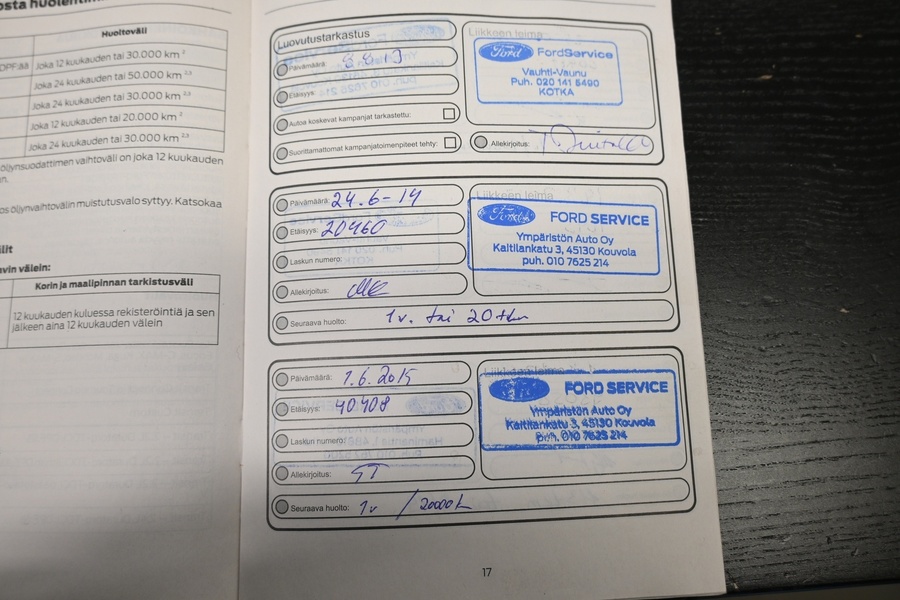 Huoltoväli
Joka 12 kuukauden tai 30.000 km ²
Joka 24 kuukauden tai 50.000 km ²,³
Joka 24 kuukauden tai 30.000 km ²,³
Joka 12 kuukauden tai 20.000 km ²
Joka 24 kuukauden tai 30.000 km ²,³
öljynsuodattimen vaihtoväli on joka 12 kuukauden
os öljynvaihtovälin muistutusvalo syttyy. Katsokaa
avin välein:
Korin ja maalipinnan tarkistusväli
12 kuukauden kuluessa rekisteröintiä ja sen
jälkeen aina 12 kuukauden välein
Luovutustarkastus
Päivämäärä
Etäisyys:
Autoa koskevat kampanjat tarkastettu:
Suorittamattomat kampanjatoimenpiteet tehty:
Liikkeen leima
Ford FordService
Vauhti-Vaunu
Puh. 020 141 5490
KOTKA
Allekirjoitus:
Päivämäärä: 24.6-14
Etäisyys: 20460
Laskun numero:
Allekirjoitus:
Seuraava huolto: 1v. tai 20tkm
Liikkeen leima
Ford FORD SERVICE
Ympäristön Auto Oy
Kaitilankatu 3, 45130 Kouvola
puh. 010 7625 214
Päivämäärä: 1.6.2015
Etäisyys: 40408
Laskun numero:
Allekirjoitus: ST
Seuraava huolto: 1v / 20000
Liikkeen leima
FORD SERVICE
Ympäristön Auto Oy
Kaitilankatu 3, 45130 Kouvola
puh. 010 7625 214
17